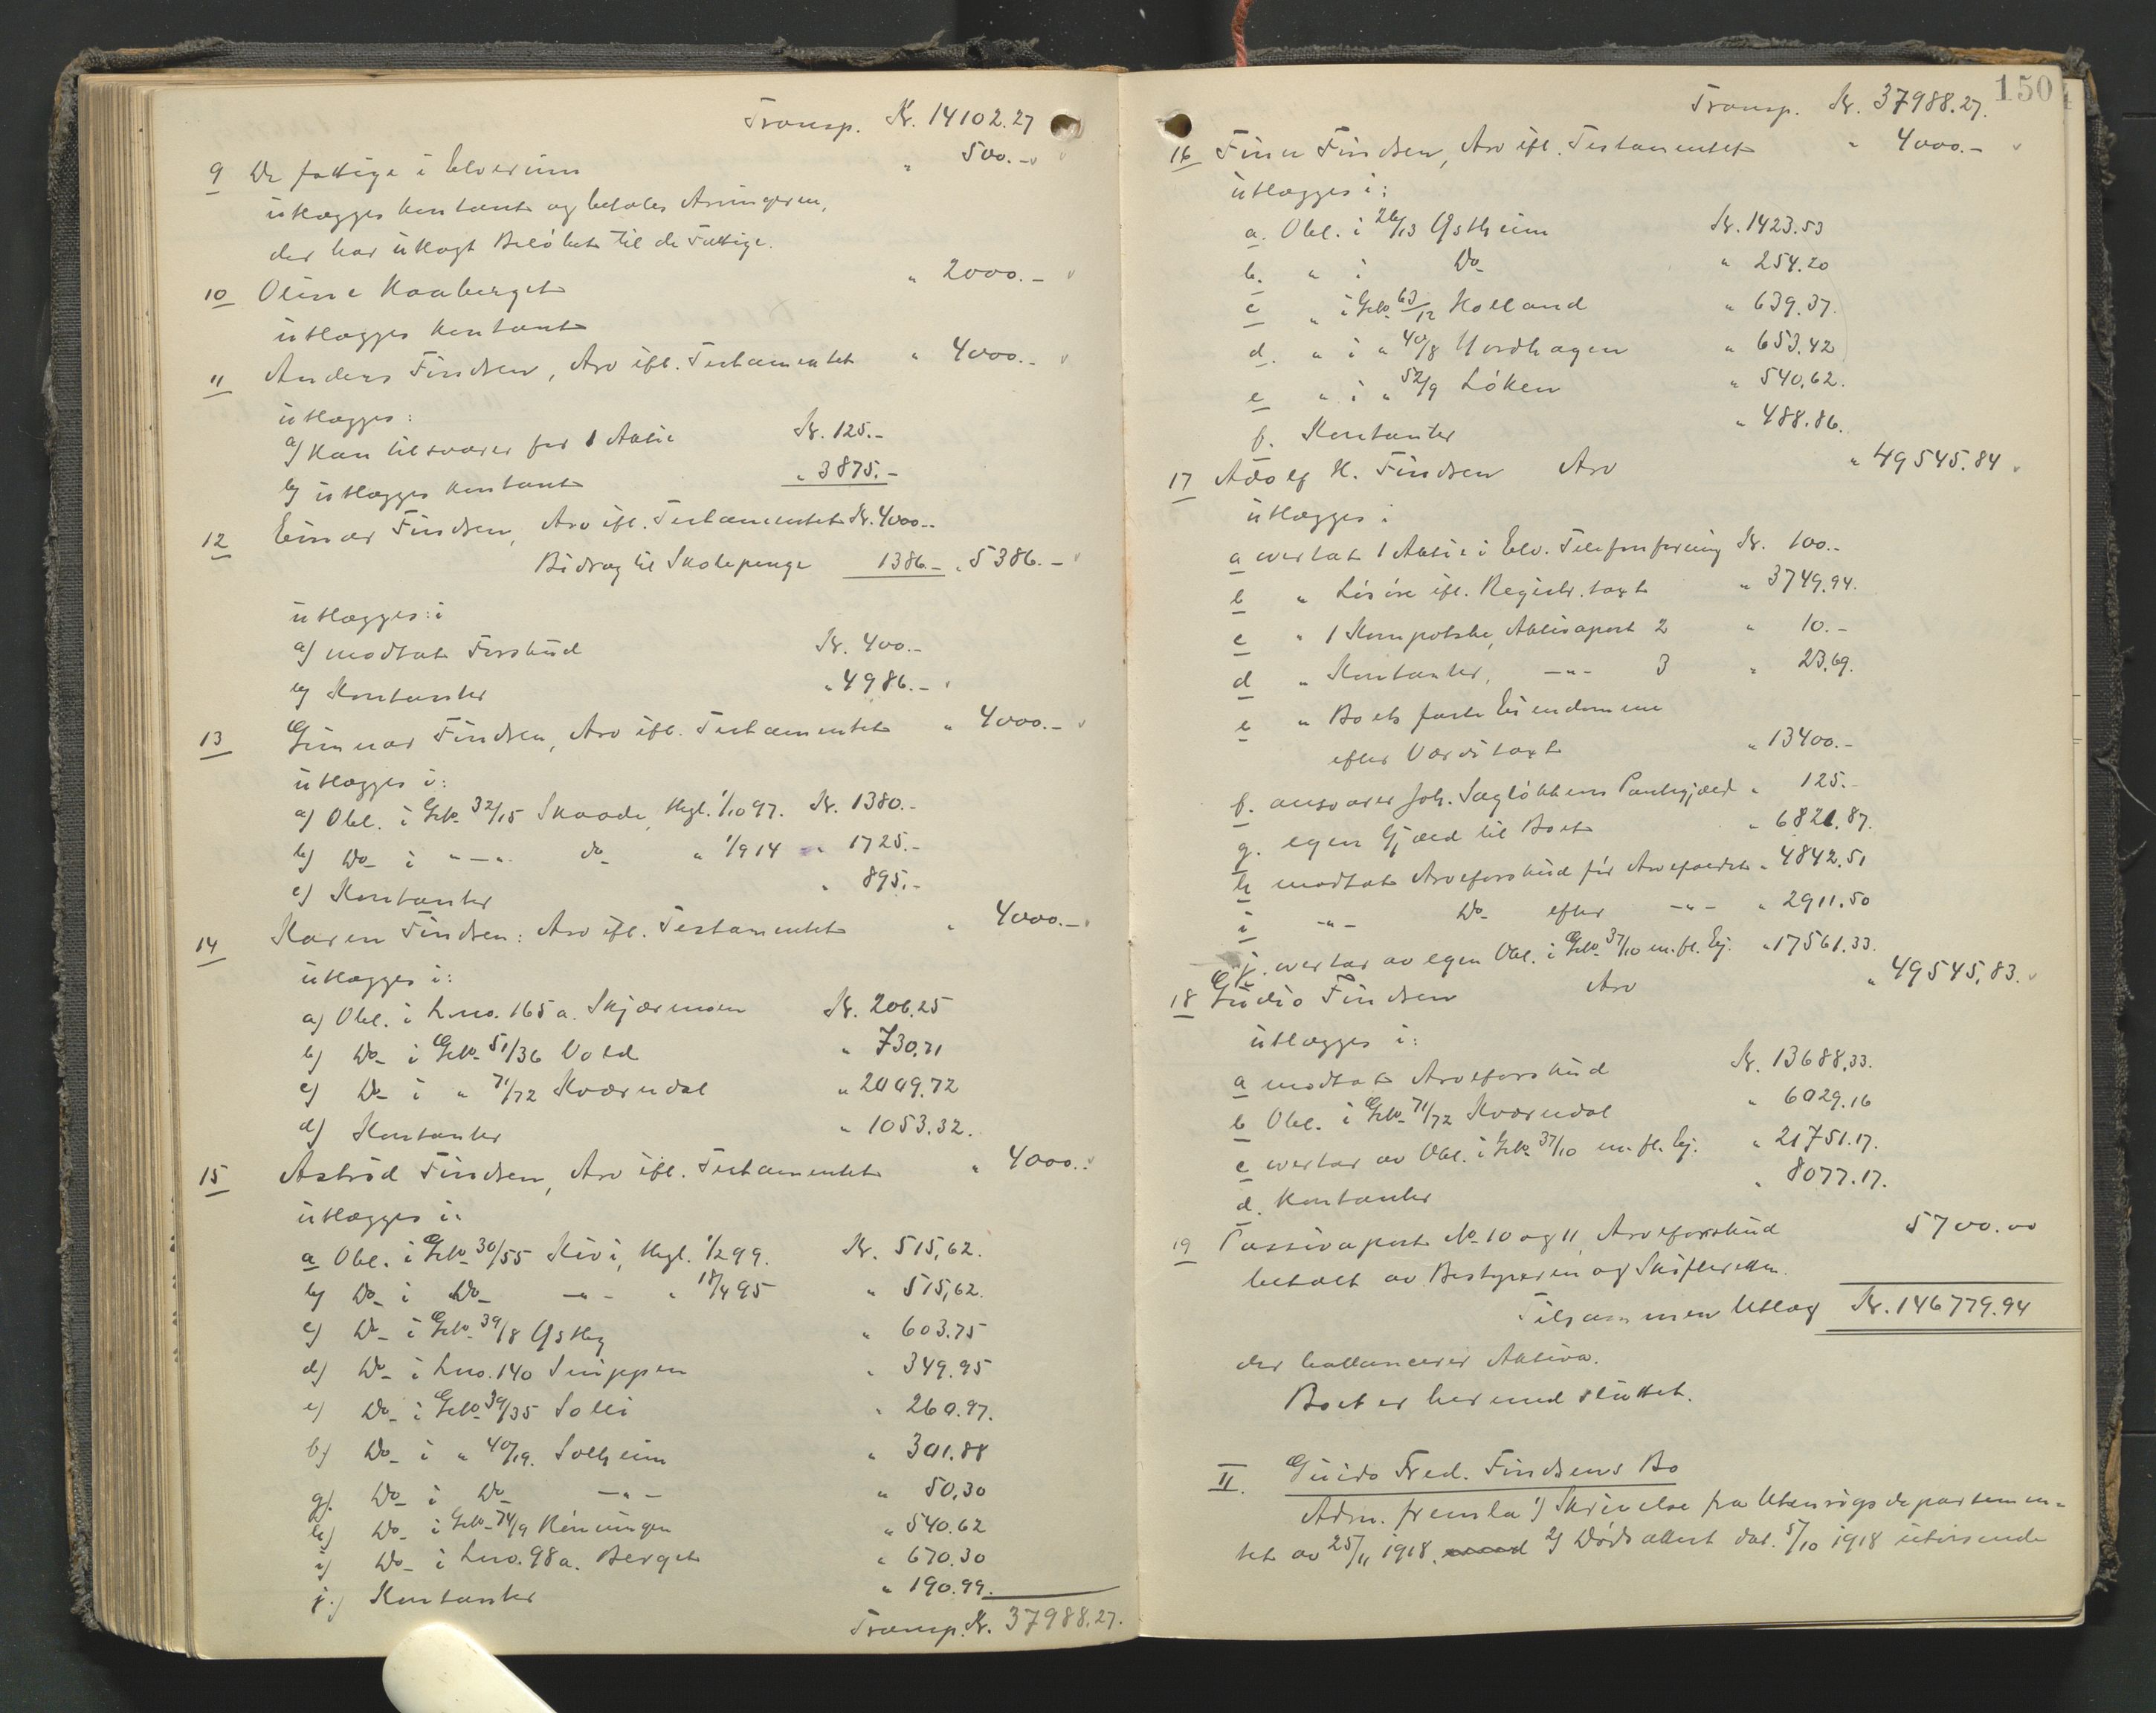 Transp. Kr. 14102.27
9 De fattige i Elverum " 500.-
utlægges kontant og betales Arvingerne,
der har utlagt Beløbet til de Fattige.
10 Oline Haaberget " 2000.-
utlægges kontant
11 Anders Findsen, Arv ifl. Testamentet " 4000.-
utlægges:
a) Han tilsvarer for 1 Aktie Kr. 125.-
b) utlægges kontant " 3875.-
12 Einar Findsen, Arv ifl. Testamentet Kr. 4000.-
Bidrag til Skolepenge 1386.- " 5386.-
utlægges i:
a) modtat Forskud Kr. 400.-
b) Kontanter " 4986.-
13 Gunnar Findsen, Arv ifl. Testamentet " 4000.-
utlægges i:
a) Obl. i Gno. 32/15 Skaade, thgl. 1/10 97. Kr. 1380.-
b) Do i " - " do " 1/9 14 " 1725.-
c) Kontanter " 895.-
14 Karen Findsen: Arv ifl. Testamentet " 4000.-
utlægges i:
a) Obl. i Lno. 165 a. Skjærmoen Kr. 206.25
b) Do i Gno 51/36 Vold " 730.71
c) Do i " 71/72 Kværndal " 2009.72
d) Kontanter " 1053.32.
15 Astrid Findsen, Arv ifl. Testamentet " 4000.-
utlægges i:
a Obl. i Gno 30/55 Kivi, thgl. 1/2 99. Kr. 515,62.
b) Do i Do - " - " 18/4 95 " 515,62.
c) Do i Gno. 39/8 Østby " 603.75
d) Do i Lno. 140 Snippen " 349.95
e) Do i Gno 39/35 Solli " 260.97.
f) Do i " 40/19. Solheim " 301.88
g). Do i Do - " - " 50,30
h) Do i Gno 74/9 " 540.62
i) Do i Lno. 98 a. Berget " 670.30
j.) Kontanter " 190.99.
Transp. Kr. 37988.27.
150
Transp. Kr. 37988.27.
16 Finn Findsen, Arv ifl. Testamentet " 4000.-
utlægges i:
a. Obl. i 26/13 Østheim Kr. 1423.53
b. " i Do " 254.20
c " i Gno 63/12 Holland " 639.37.
d. " i " 40/8 Nordhagen " 653.42
e " i " 52/9 Løken " 540,62.
f. Kontanter " 488.86.
17 Adolf H. Findsen Arv " 49545.84
utlægges i
a overtat 1 Aktie i Elv. Telefonforening Kr. 100.-
b " Løsøre ifl. Registr. takst " 3749.94.
c " 1 Aktivapost 2 " 10.-
d " Kontanter, - " - 3 " 23.69.
e " Boets faste Eiendomme
efter Værditakst " 13400.-
f. ansvarer Joh. Sagløkkens Pantegjæld " 125.-
g. egen Gjæld til Boet " 6821.87.
h modtat Arveforskud før Arvefaldet " 4842.51
i - " - Do efter - " - " 2911.50
j. overtar av egen Obl. i Gno 37/10 m. fl. Ej. " 17561.33.
18 Guido Findsen Arv " 49545,83.
utlægges i:
a modtat Arveforskud Kr. 13688,33.
b Obl. i Gno 71/72 Kværndal " 6029.16
c overtar av Obl. i Gno 37/10 m. fl. Ej. " 21751.17.
d. Kontanter " 8077.17.
19 Passivapost No 10 og 11, Arveforskud 5700.00
betalt av Bestyreren og Skifteretten.
Tilsammen Utlæg Kr. 146779.94
der ballancerer Aktiva.
Boet er hermed sluttet.
II. Guido Fred. Findsens Bo
Adm. fremla 1) Skrivelse fra Utenrigsdepartemen-
tet av 25/11 1918. 2) Dødsattest dat. 5/10 1918 utvisende